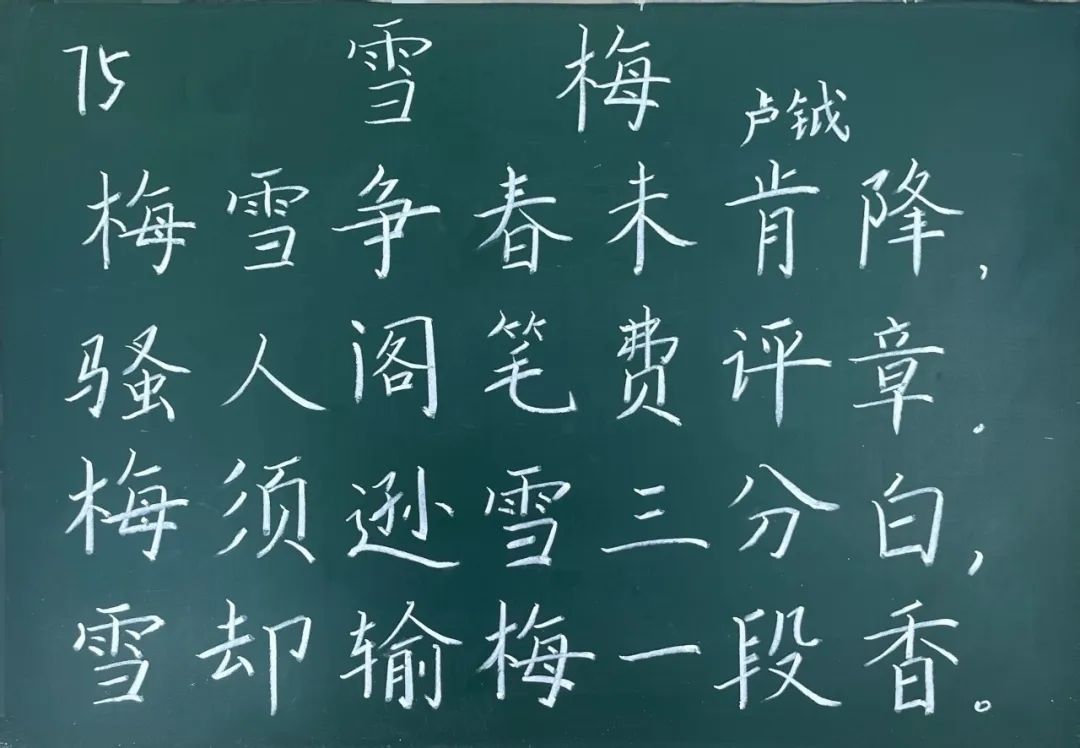 75 雪梅
卢钺
梅雪争春未肯降,
骚人阁笔费评章.
梅须逊雪三分白,
雪却输梅一段香。